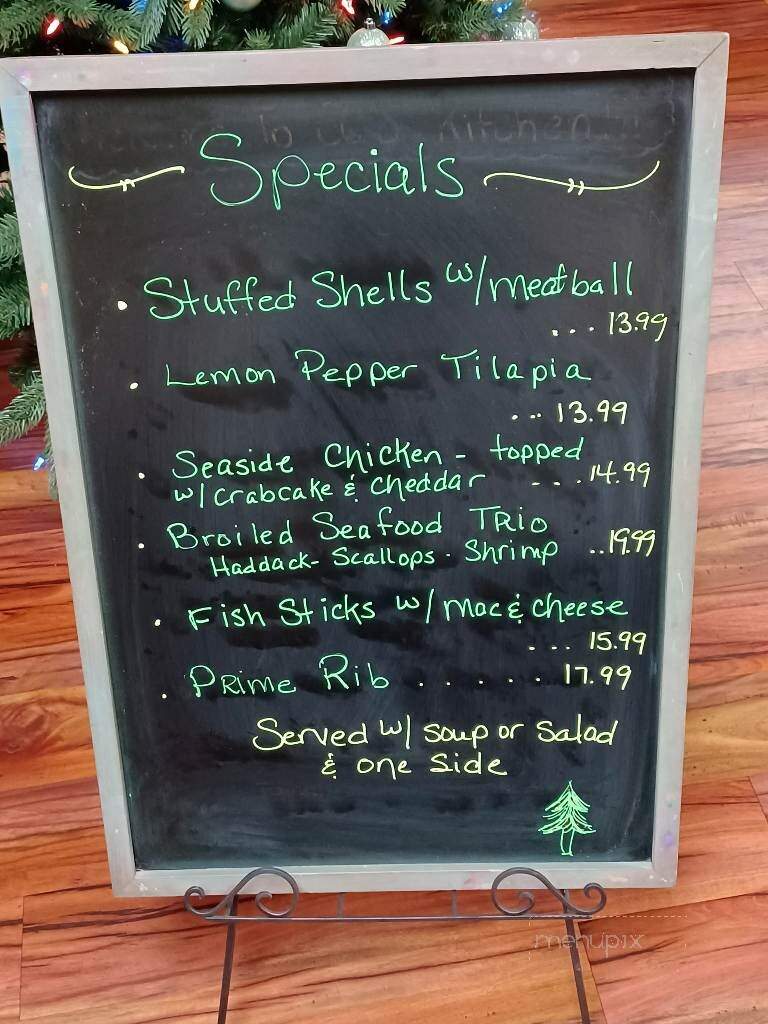 to Kitchen
Specials
• Stuffed Shells w/meatball
... 13.99
• Lemon Pepper Tilapia
... 13.99
• Seaside Chicken - topped
w/ Crabcake & Cheddar ... 14.99
• Broiled Seafood Trio
Haddack - Scallops - Shrimp ..19.99
• Fish Sticks w/ Mac & cheese
... 15.99
• Prime Rib ...... 17.99
Served w/ soup or Salad
& one Side
menupix